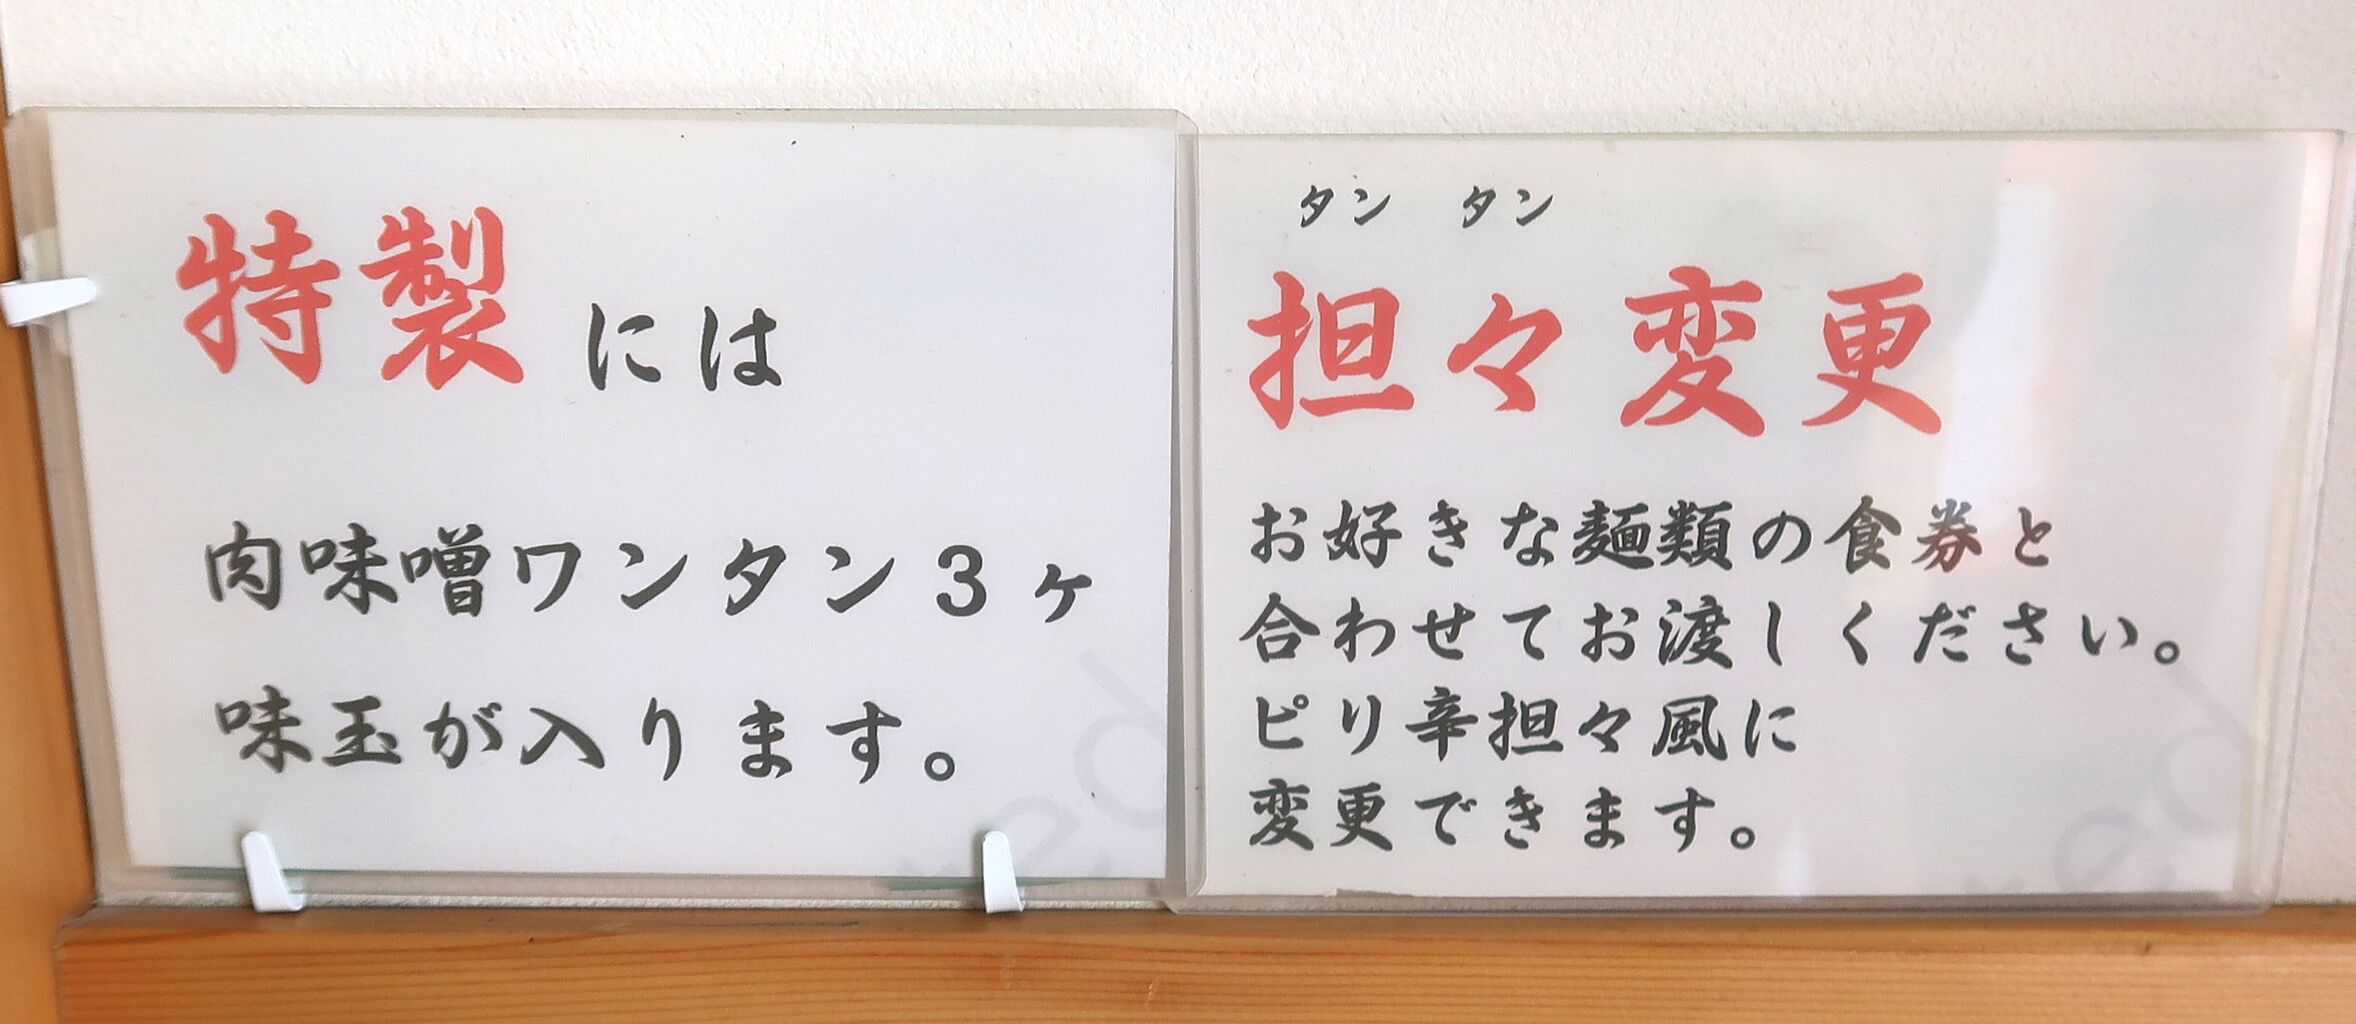 特製には
肉味噌ワンタン3ヶ
味玉が入ります。
タンタン
担々変更
お好きな麺類の食券と
合わせてお渡しください。
ピリ辛担々風に
変更できます。